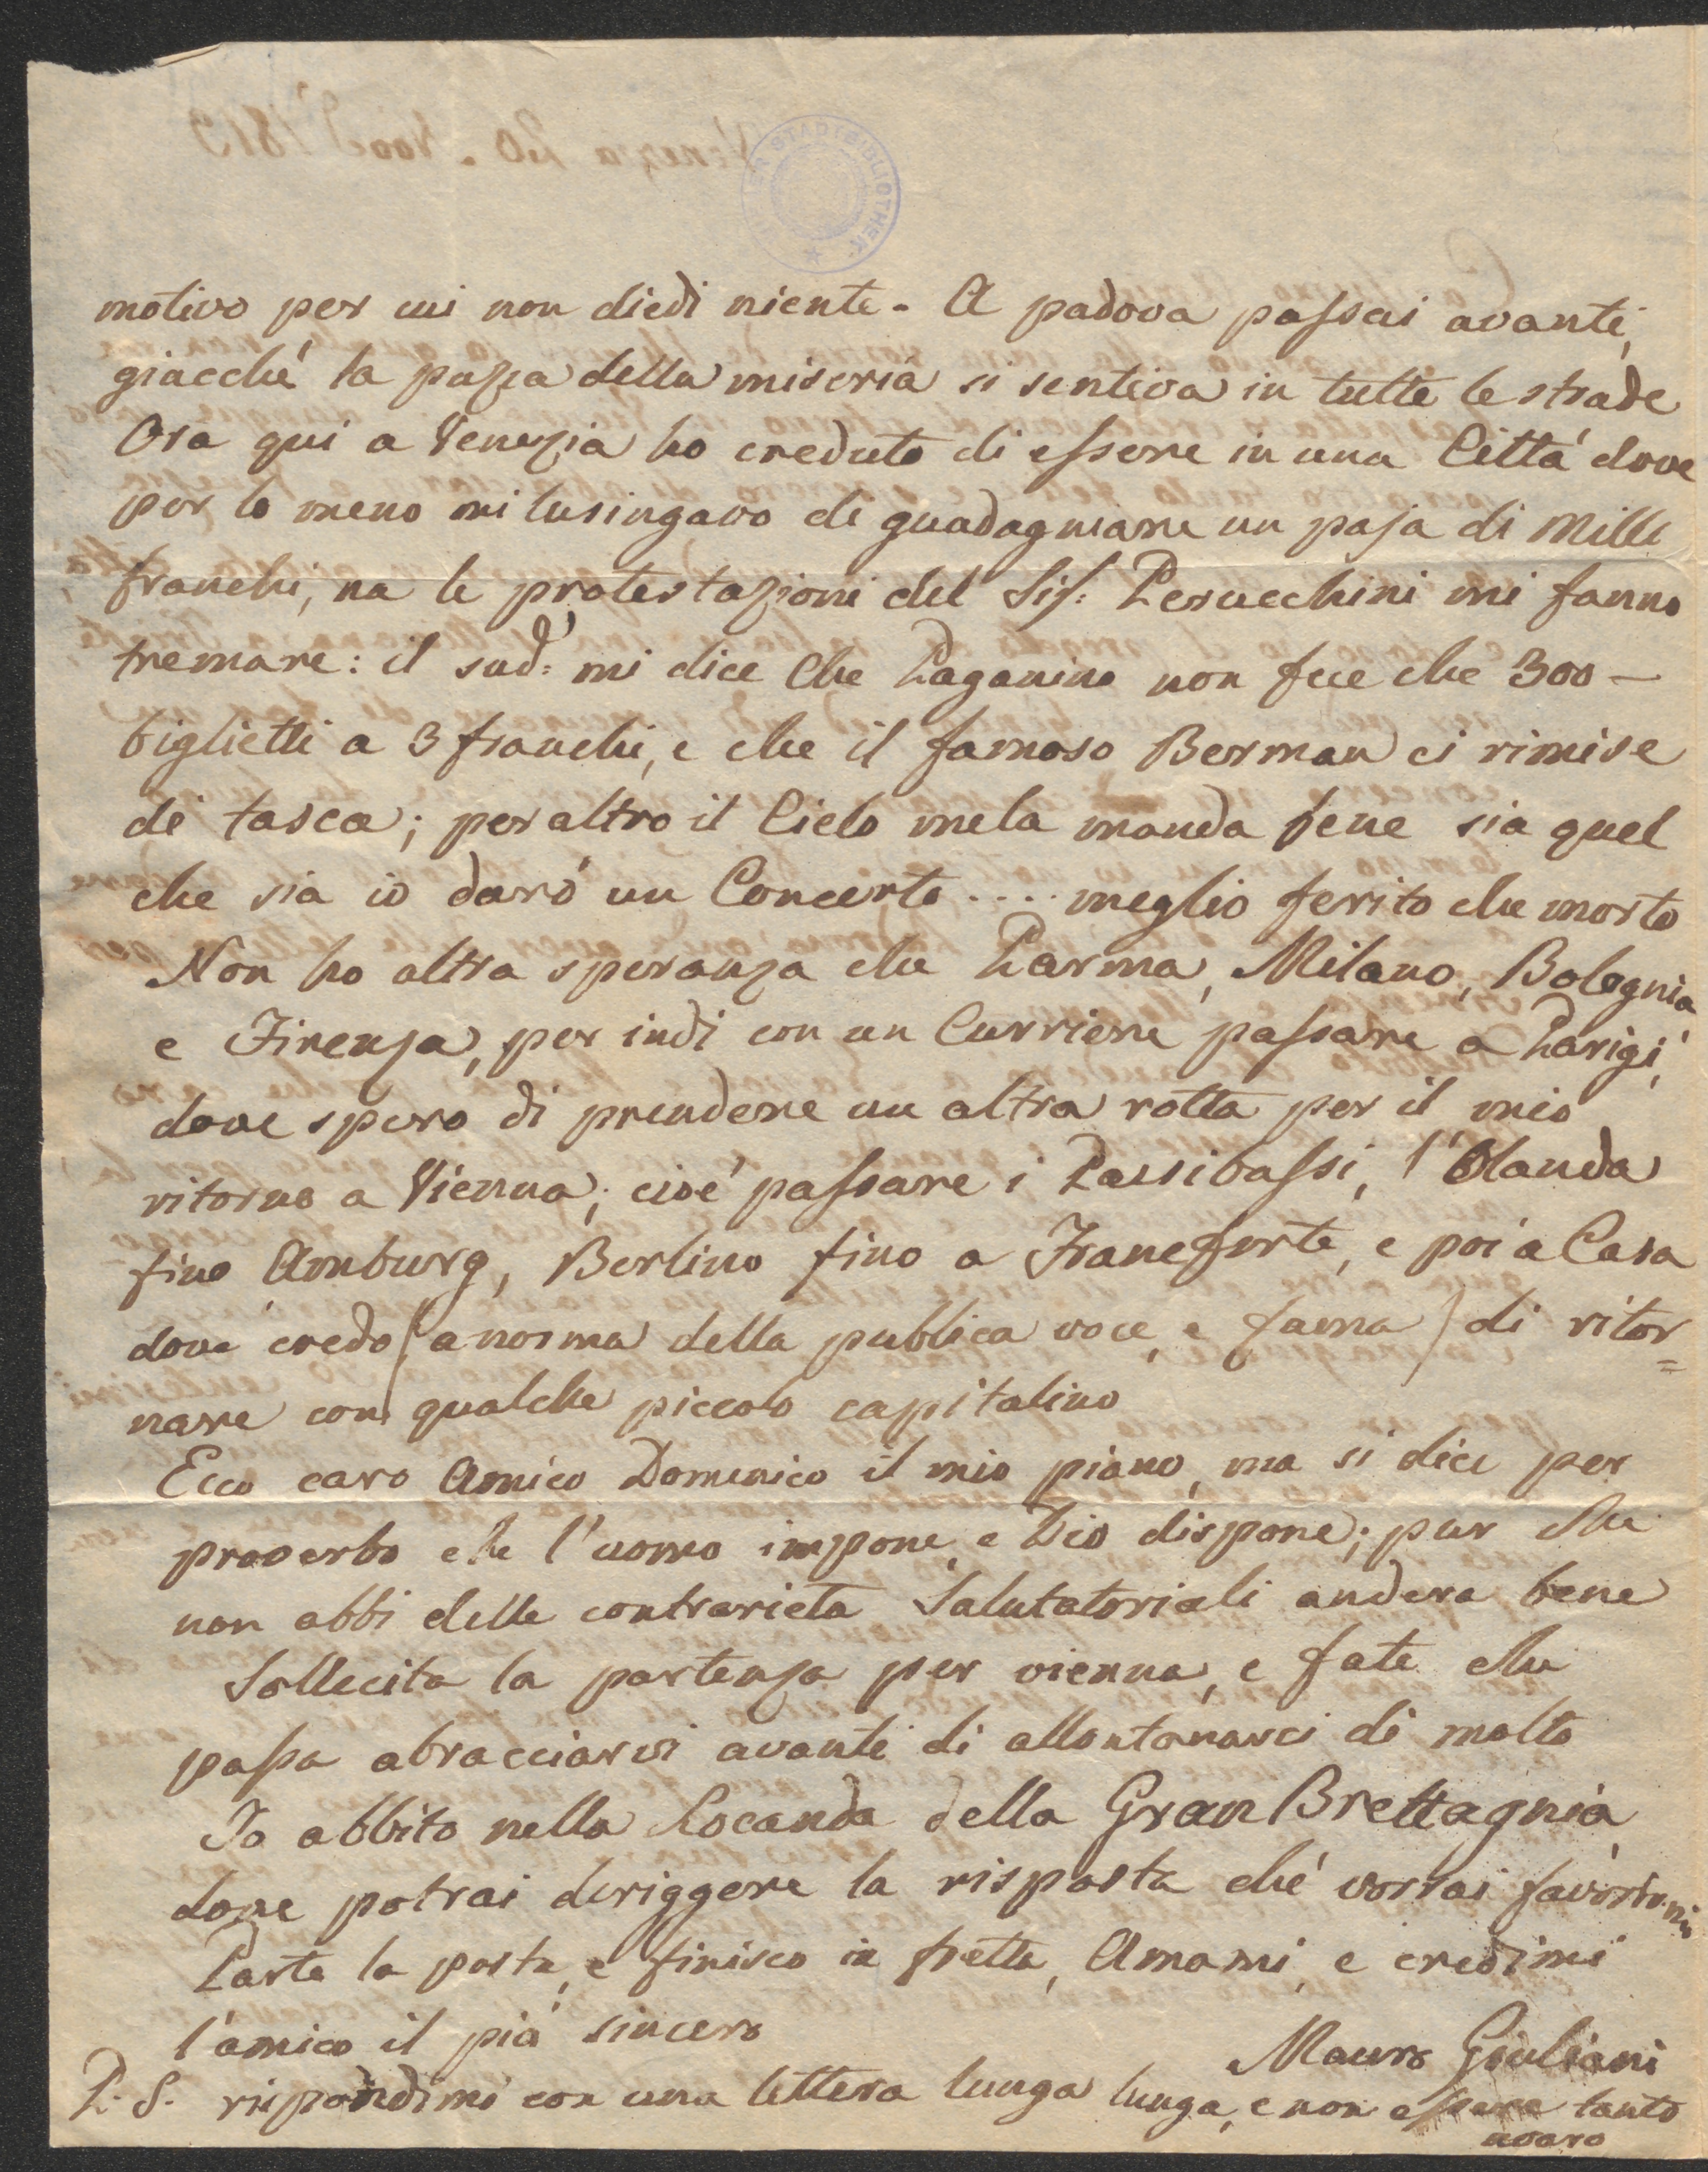 motivo per cui non diedi niente. A padova passai avanti,
giacché la puzza della miseria si sentiva in tutte le strade
Ora qui a Venezia ho creduto di essere in una Cittá dove
per lo meno mi lusingavo di guadagniare un paja di Mille
franchi, ma le protestazioni del Sig: Perucchini mi fanno
tremare: il sud: mi dice che Paganino non fece che 300 –
biglietti a 3 franchi, e che il famoso Berman ci rimise
di tasca; per altro il Cielo mela manda bene sia quel
che sia io daró un Concerto .... meglio ferito che morto
Non ho altra speranza che Parma, Milano, Bolognia
e Firenza, per indi con un Curriere passare a Parigi,
dove spero di prendere un altra rotta per il mio
ritorno a Vienna; cioé passare i Paesibassi, l'Olanda
fino Amburg, Berlino fino a Francforte, e poi a Casa
dove credo (a norma della publica voce, e fama) di ritor=
nare con qualche piccolo capitalino
Ecco caro Amico Domenico il mio piano, ma si dice per
proverbo che l'uomo impone, e Dio dispone; pur che
non abbi delle contrarieta Salutatoriali andera bene
Sollecita la partenza per vienna, e fate che
possa abracciarvi avanti di allontanarci di molto
Io abbito nella Locanda della Gran Brettagnia,
dove potrai deriggere la risposta ché vorrai favorirmi
Parte la posta, e finisco in fretta, Amami, e credimi
l'amico il piú sincero
Mauro Giuliani
P. S. rispondimi con una lettera lunga lunga, e non essere tanto
avaro
Venezia 20. Nov 1819
STADTBIBLIOTHEK